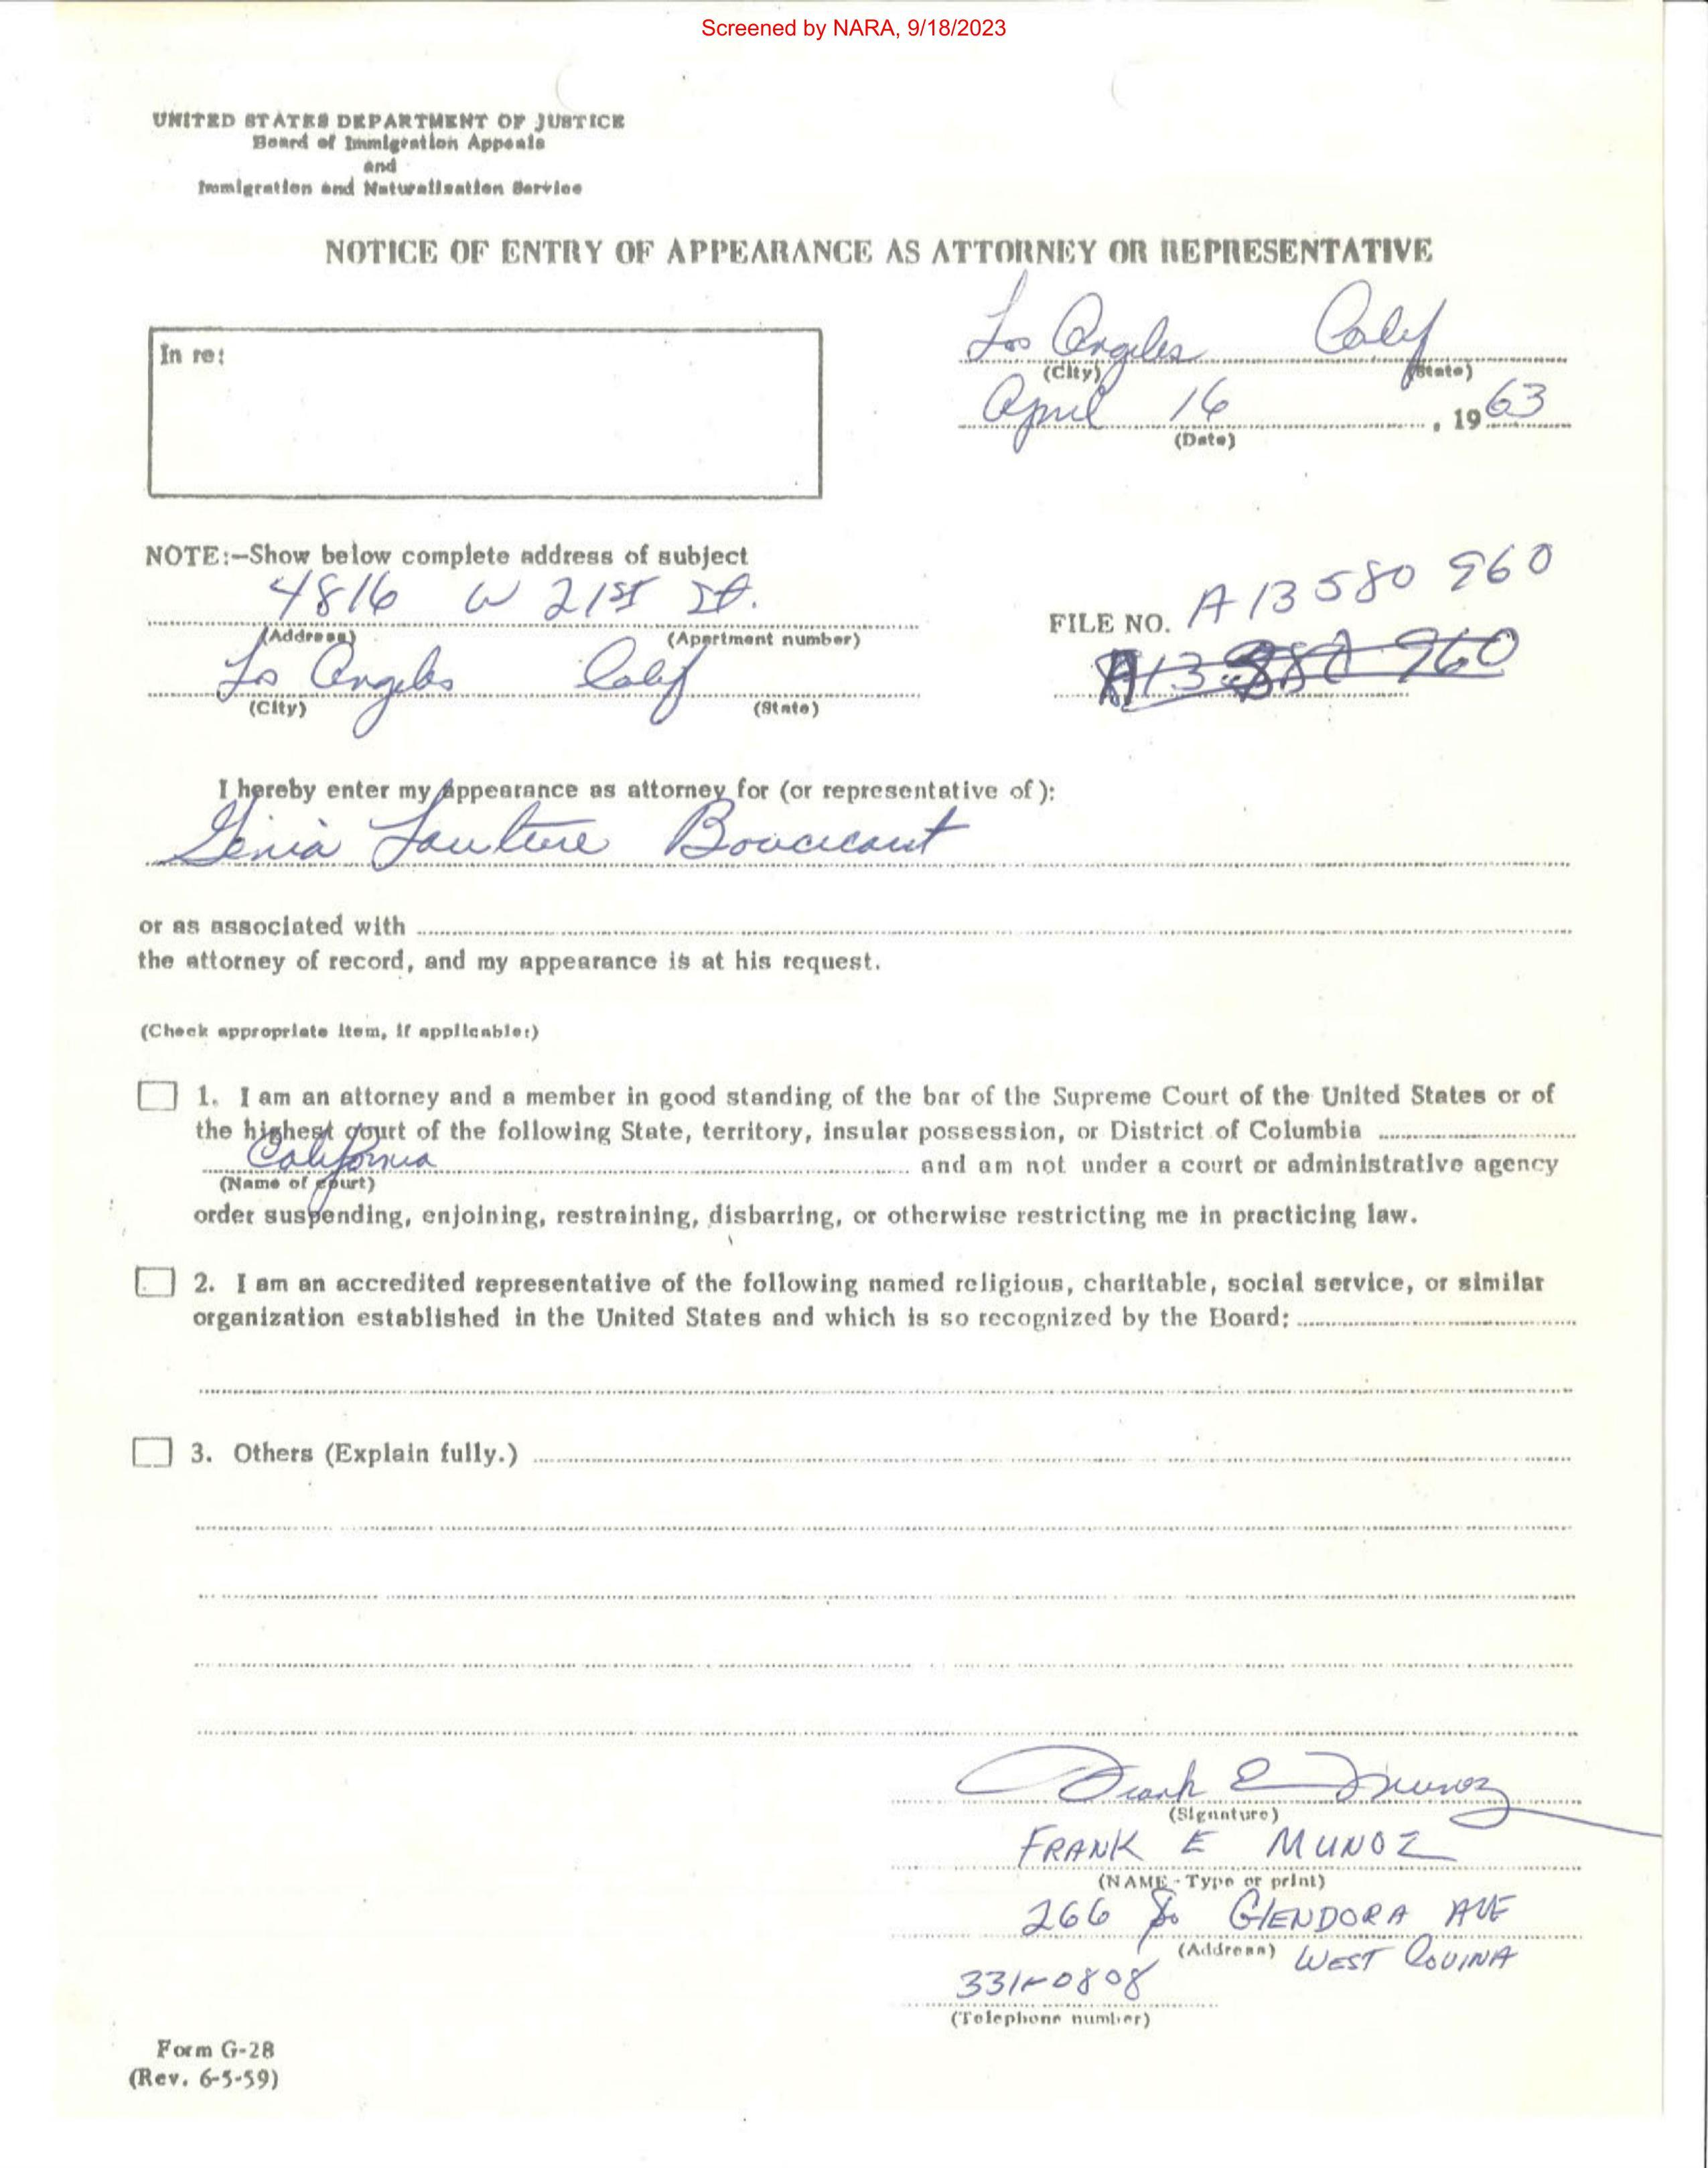 Screened by NARA, 9/18/2023
UNITED STATES DEPARTMENT OF JUSTICE
Board of Immigration Appeals
and
Immigration and Naturalization Service
NOTICE OF ENTRY OF APPEARANCE AS ATTORNEY OR REPRESENTATIVE
In re:
Los Angeles Calif
(City) (State)
April 16, 1963
(Date)
NOTE:—Show below complete address of subject
4816 W 21st St.
(Address) (Apartment number)
Los Angeles Calif
(City) (State)
FILE NO. A13 580 960
I hereby enter my appearance as attorney for (or representative of):
Genia
or as associated with
the attorney of record, and my appearance is at his request.
(Check appropriate item, if applicable:)
1. I am an attorney and a member in good standing of the bar of the Supreme Court of the United States or of
the highest court of the following State, territory, insular possession, or District of Columbia
California and am not under a court or administrative agency
(Name of court)
order suspending, enjoining, restraining, disbarring, or otherwise restricting me in practicing law.
2. I am an accredited representative of the following named religious, charitable, social service, or similar
organization established in the United States and which is so recognized by the Board:
3. Others (Explain fully.)
Frank E Munoz
(Signature)
FRANK E MUNOZ
(NAME - Type or print)
266 So GLENDORA AVE
(Address) WEST COVINA
331-0808
(Telephone number)
Form G-28
(Rev. 6-5-59)